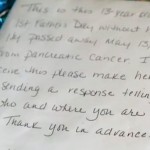 This is this 13 year
1st Father's Day without
He passed away May 13,
from pancreatic cancer. I
ceive this please make her
sending a response tellin
who and where you are
Thank you in advance